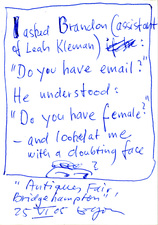 I asked Brandon (assistant
of Leah Kleman :
"Do you have email?"
He understood:
"Do you have female?"
– and lookel at me
with a doubting face
?
"Antiques Fair
Bridgehampton",
25 VI 05